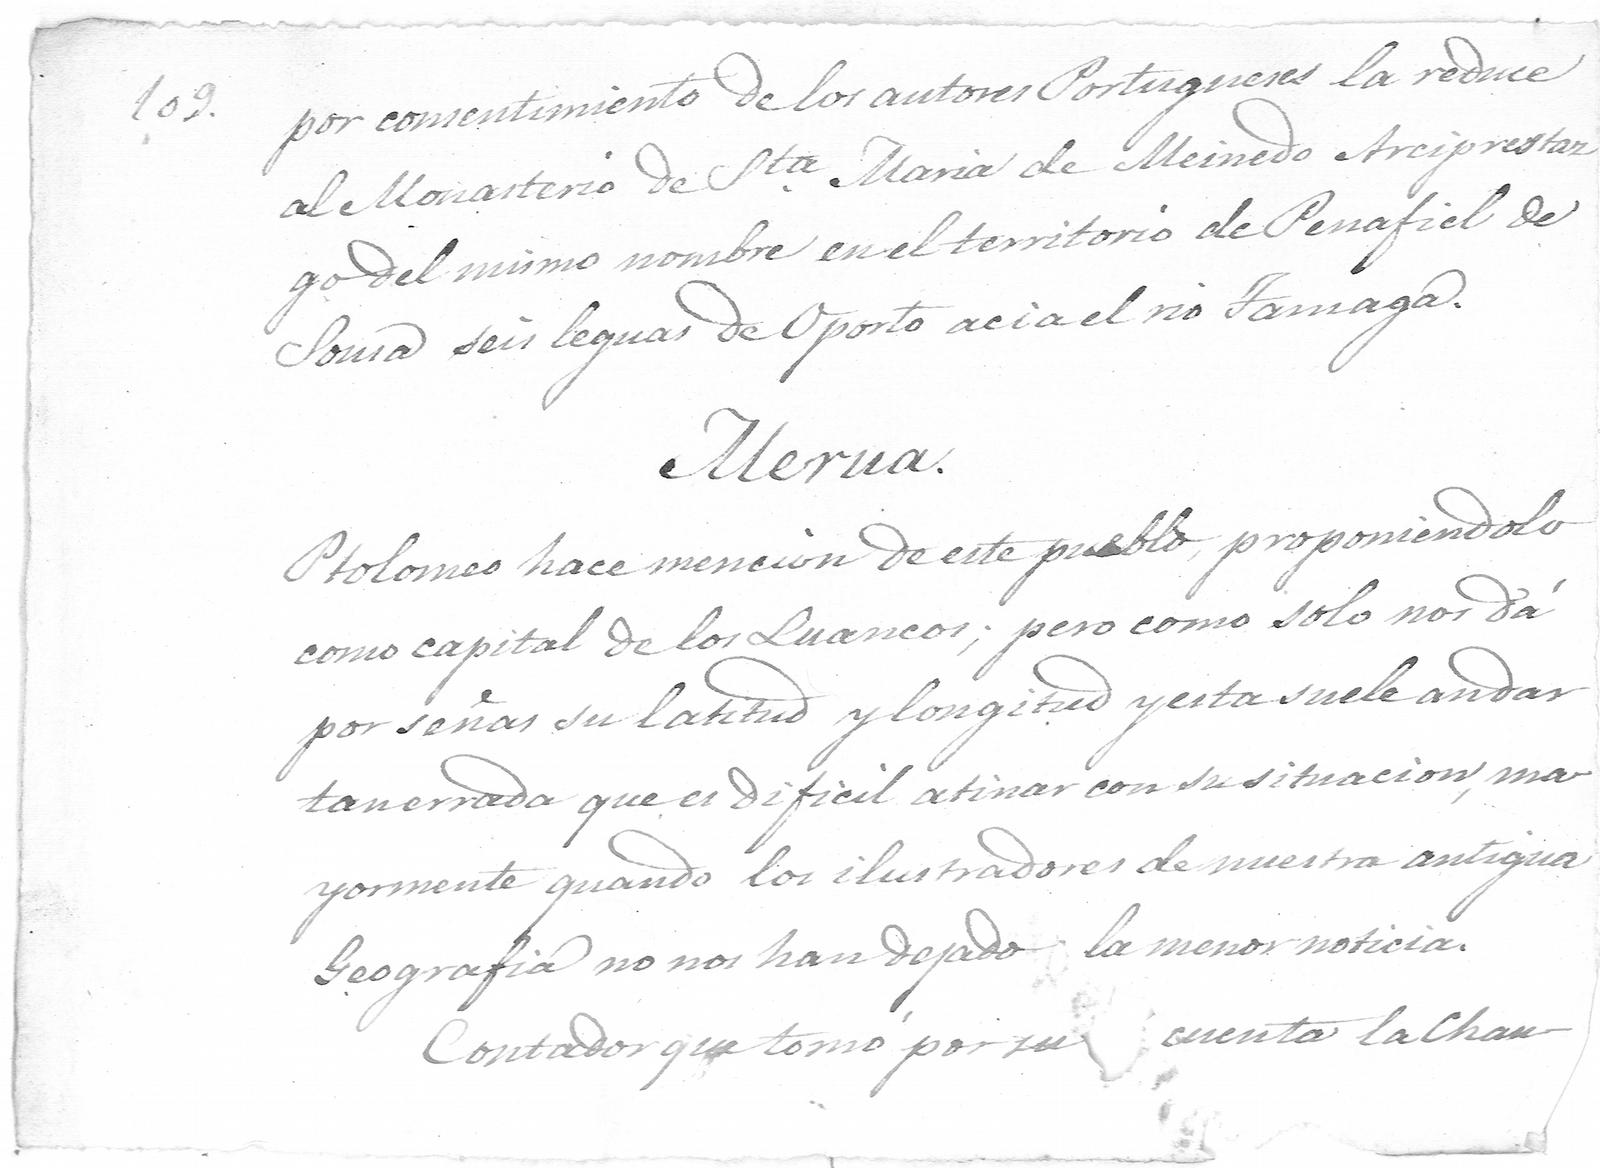 109.
por consentimiento de los autores Portugueses la reduce
al Monasterio de Sta. Maria de Meinedo Arciprestaz
go del mismo nombre en el territorio de Penafiel de
Sousa seis leguas de Oporto acia el rio Tamaga.
Merua.
Ptolomeo hace mencion de este pueblo, proponiendolo
como capital de los Luancos; pero como solo nos dá
por señas su latitud y longitud y esta suele andar
tan errada que es dificil atinar con su situacion, ma-
yormente quando los ilustradores de nuestra antigua
Geografia no nos han dejado la menor noticia.
Contador que tomó por su cuenta la Chan-